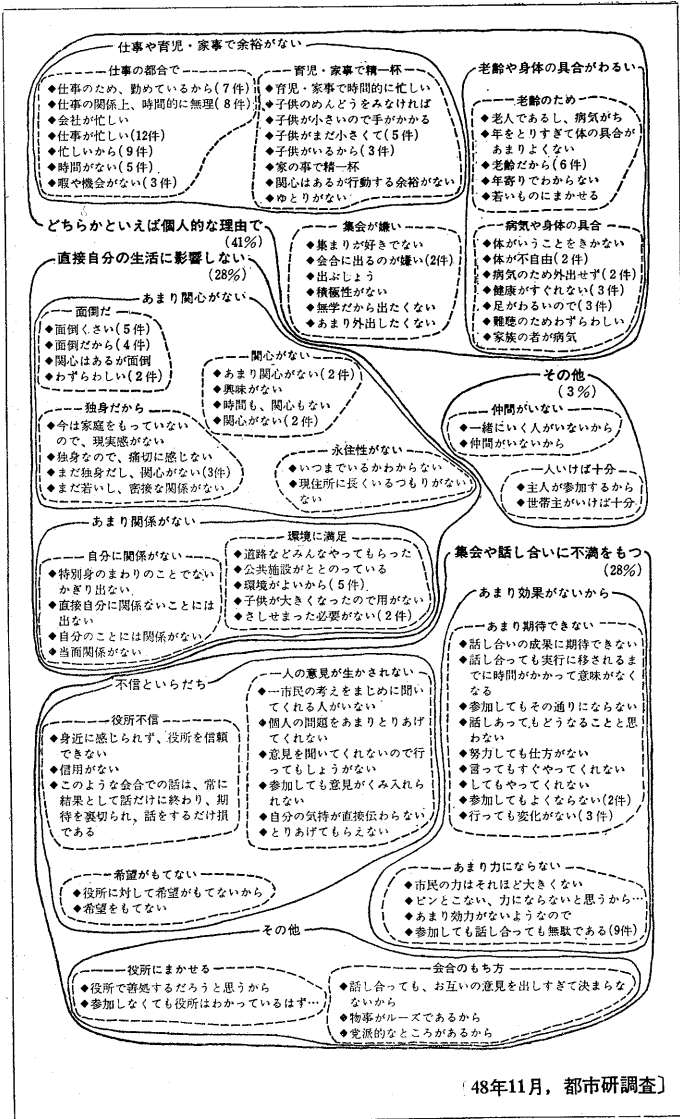 仕事や育児・家事で余裕がない
仕事の都合で
◆仕事のため、勤めているから(7件)
◆仕事の関係上、時間的に無理(8件)
◆会社が忙しい
◆仕事が忙しい(12件)
◆忙しいから(9件)
◆時間がない(5件)
◆暇や機会がない(3件)
育児・家事で精一杯
◆育児・家事で時間的に忙しい
◆子供のめんどうをみなければ
◆子供が小さいので手がかかる
◆子供がまだ小さくて(5件)
◆子供がいるから(3件)
◆家の事で精一杯
◆関心はあるが行動する余裕がない
◆ゆとりがない
老齢や身体の具合がわるい
老齢のため
◆老人であるし、病気がち
◆年をとりすぎて体の具合が
あまりよくない
◆老齢だから(6件)
◆年寄りでわからない
◆若いものにまかせる
病気や身体の具合
◆体がいうことをきかない
◆体が不自由(2件)
◆病気のため外出せず(2件)
◆健康がすぐれない(3件)
◆足がわるいので(3件)
◆難聴のためわずらわしい
◆家族の者が病気
どちらかといえば個人的な理由で
(41%)
集会が嫌い
◆集まりが好きでない
◆会合に出るのが嫌い(2件)
◆出ぶしょう
◆積極性がない
◆無学だから出たくない
◆あまり外出したくない
直接自分の生活に影響しない
(28%)
あまり関心がない
面倒だ
◆面倒くさい(5件)
◆面倒だから(4件)
◆関心はあるが面倒
◆わずらわしい(2件)
関心がない
◆あまり関心がない(2件)
◆興味がない
◆時間も、関心もない
◆関心がない(2件)
独身だから
◆今は家庭をもっていない
ので、現実感がない
◆独身なので、痛切に感じない
◆まだ独身だし、関心がない(3件)
◆まだ若いし、密接な関係がない
永住性がない
◆いつまでいるかわからない
◆現住所に長くいるつもりがない
ない
その他
(3%)
仲間がいない
◆一緒にいく人がいないから
◆仲間がいないから
一人いけば十分
◆主人が参加するから
◆世帯主がいけば十分
あまり関係がない
自分に関係がない
◆特別身のまわりのことでない
かぎり出ない
◆直接自分に関係ないことには
出ない
◆自分のことには関係がない
◆当面関係がない
環境に満足
◆道路などみんなやってもらった
◆公共施設がととのっている
◆環境がよいから(5件)
◆子供が大きくなったので用がない
◆さしせまった必要がない(2件)
集会や話し合いに不満をもつ
(28%)
あまり効果がないから
あまり期待できない
◆話し合いの成果に期待できない
◆話し合っても実行に移されるま
でに時間がかかって意味がなく
なる
◆参加してもその通りにならない
◆話しあってもどうなることと思
わない
◆努力しても仕方がない
◆言ってもすぐやってくれない
◆してもやってくれない
◆参加してもよくならない(2件)
◆行っても変化がない(3件)
あまり力にならない
◆市民の力はそれほど大きくない
◆ピンとこない、力にならないと思うから…
◆あまり効力がないようなので
◆参加しても話し合っても無駄である(9件)
不信といらだち
役所不信
◆身近に感じられず、役所を信頼
できない
◆信用がない
◆このような会合での話は、常に
結果として話だけに終わり、期
待を裏切られ、話をするだけ損
である
人の意見が生かされない
◆一市民の考えをまじめに聞い
てくれる人がいない
◆個人の問題をあまりとりあげ
てくれない
◆意見を聞いてくれないので行
ってもしょうがない
◆参加しても意見がくみ入れら
れない
◆自分の気持が直接伝わらない
◆とりあげてもらえない
希望がもてない
◆役所に対して希望がもてないから
◆希望をもてない
その他
役所にまかせる
◆役所で善処するだろうと思うから
◆参加しなくても役所はわかっているはず…
会合のもち方
◆話し合っても、お互いの意見を出しすぎて決まらな
ないから
◆物事がルーズであるから
◆党派的なところがあるから
〔48年11月，都市研調査〕